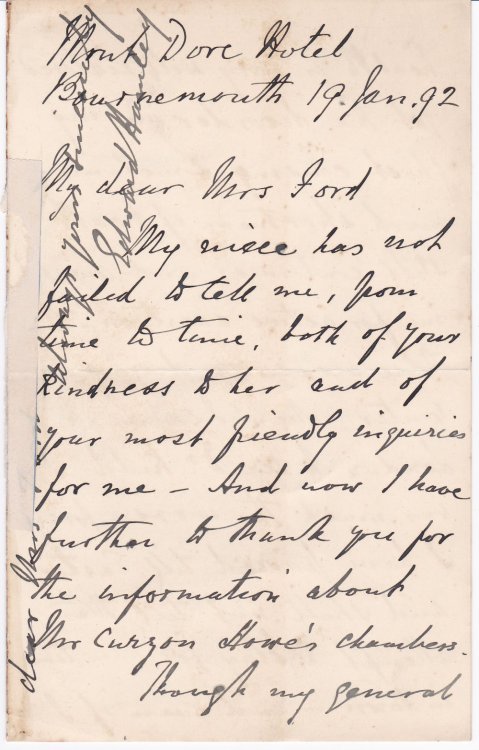 Mont Dore Hotel
Bournemouth 19 Jan. 92
My dear Mrs Ford
My niece has not
failed to tell me, from
time to time, both of your
kindness to her and of
your most friendly inquiries
for me – And now I have
further to thank you for
the information about
Mr Curzon Howe's chambers.
Though my general
dear Mrs Ford
always yours sincerely
Edward Hamley